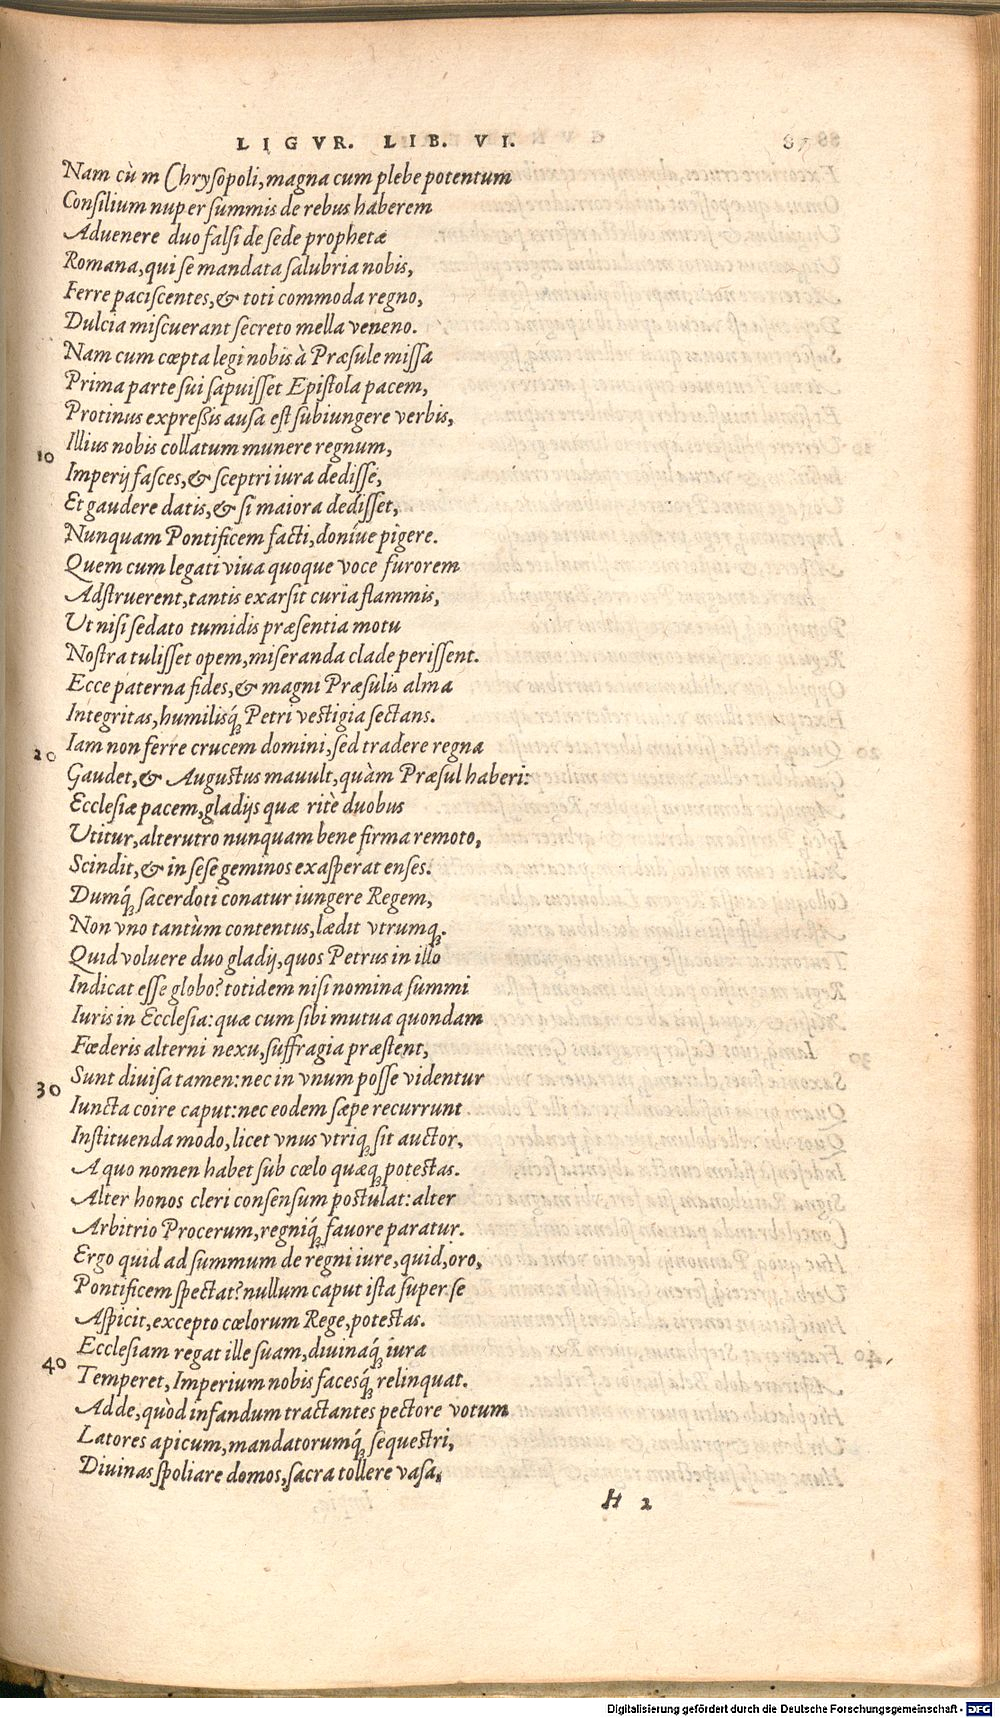 LIGVR. LIB. VI. 87
Nam cù m Chrysopoli, magna cum plebe potentum
Consilium nuper summis de rebus haberem
Aduenere duo falsi de sede prophetæ
Romana, qui se mandata salubria nobis,
Ferre paciscentes, & toti commoda regno,
Dulcia miscuerant secreto mella veneno.
Nam cum cœpta legi nobis à Præsule missa
Prima parte sui sapuisset Epistola pacem,
Protinus expressis ausa est subiungere verbis,
10 Illius nobis collatum munere regnum,
Imperij fasces, & sceptri iura dedisse,
Et gaudere datis, & si maiora dedisset,
Nunquam Pontificem facti, doniue pigere.
Quem cum legati viua quoque voce furorem
Adstruerent, tantis exarsit curia flammis,
Ut nisi sedato tumidis præsentia motu
Nostra tulisset opem, miseranda clade perissent.
Ecce paterna fides, & magni Præsulis alma
Integritas, humilisq́; Petri vestigia sectans.
20 Iam non ferre crucem domini, sed tradere regna
Gaudet, & Augustus mauult, quàm Præsul haberi:
Ecclesiæ pacem, gladijs quæ ritè duobus
Utitur, alterutro nunquam bene firma remoto,
Scindit, & in sese geminos exasperat enses.
Dumq́; sacerdoti conatur iungere Regem,
Non vno tantùm contentus, lædit vtrumq;.
Quid voluere duo gladij, quos Petrus in illo
Indicat esse globo? totidem nisi nomina summi
Iuris in Ecclesia: quæ cum sibi mutua quondam
Fœderis alterni nexu, suffragia præstent,
30 Sunt diuisa tamen: nec in vnum posse videntur
Iuncta coire caput: nec eodem sæpe recurrunt
Instituenda modo, licet vnus vtriq; sit auctor,
A quo nomen habet sub cœlo quæq; potestas.
Alter honos cleri consensum postulat: alter
Arbitrio Procerum, regniq́; fauore paratur.
Ergo quid ad summum de regni iure, quid, oro,
Pontificem spectat? nullum caput ista super se
Aspicit, excepto cœlorum Rege, potestas.
Ecclesiam regat ille suam, diuinaq́; iura
40 Temperet, Imperium nobis facesq́; relinquat.
Adde, quòd infandum tractantes pectore votum
Latores apicum, mandatorumq́; sequestri,
Diuinas spoliare domos, sacra tollere vasa,
H 2
Digitalisierung gefördert durch die Deutsche Forschungsgemeinschaft - DFG